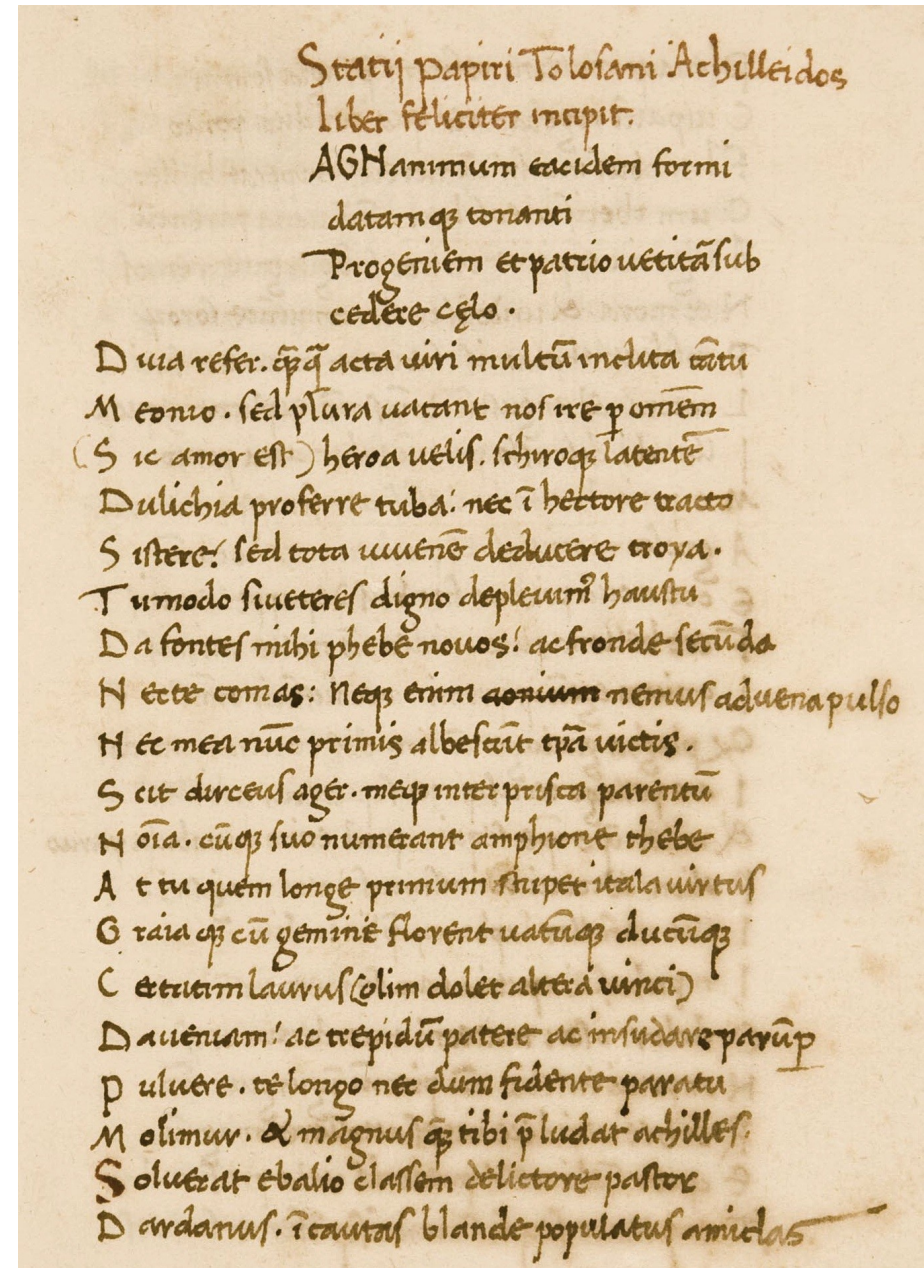 Statij papiri Tolosani Achilleidos
liber feliciter incipit.
AGNanimum eacidem formi
datam qꝫ tonanti
Progeniem et patrio uetitā sub
cedere cęlo.
Diua refer. qꝫ̄ꝗ̄ acta uiri multū incluta cātu
Meonio. sed pl̄ura uacant nos ire p̱ omēm
(Sic amor est) heroa uelis. schiroqꝫ latentē
Dulichia proferre tuba: nec ī hectore tracto
Sistere: sed tota iuuenē deducere troya.
Tu modo si ueteres digno depleuimꝰ haustu
Da fontes mihi phebe nouos: ac fronde secūda
Necte comas: Neqꝫ enim aonium nemus aduena pulso
Nec mea nūc primis albescūt tp̄a uictis.
Scit dirceus ager. meqꝫ inter prisca parentū
Noīa. cūqꝫ suo numerant amphione thebe
At tu quem longe primum stupet itala uirtus
Graia qꝫ cū gemine florent uatūqꝫ ducūqꝫ
Certatim laurus (olim dolet altera uinci)
Da ueniam: ac trepidū patere ac insudare parūp̱
Puluere. te longo nec dum fidente paratu
Molimur. & magnus qꝫ tibi p̄ludat achilles.
Soluerat ebalio classem delictore pastor
Dardanus. īcautas blande populatus amiclas